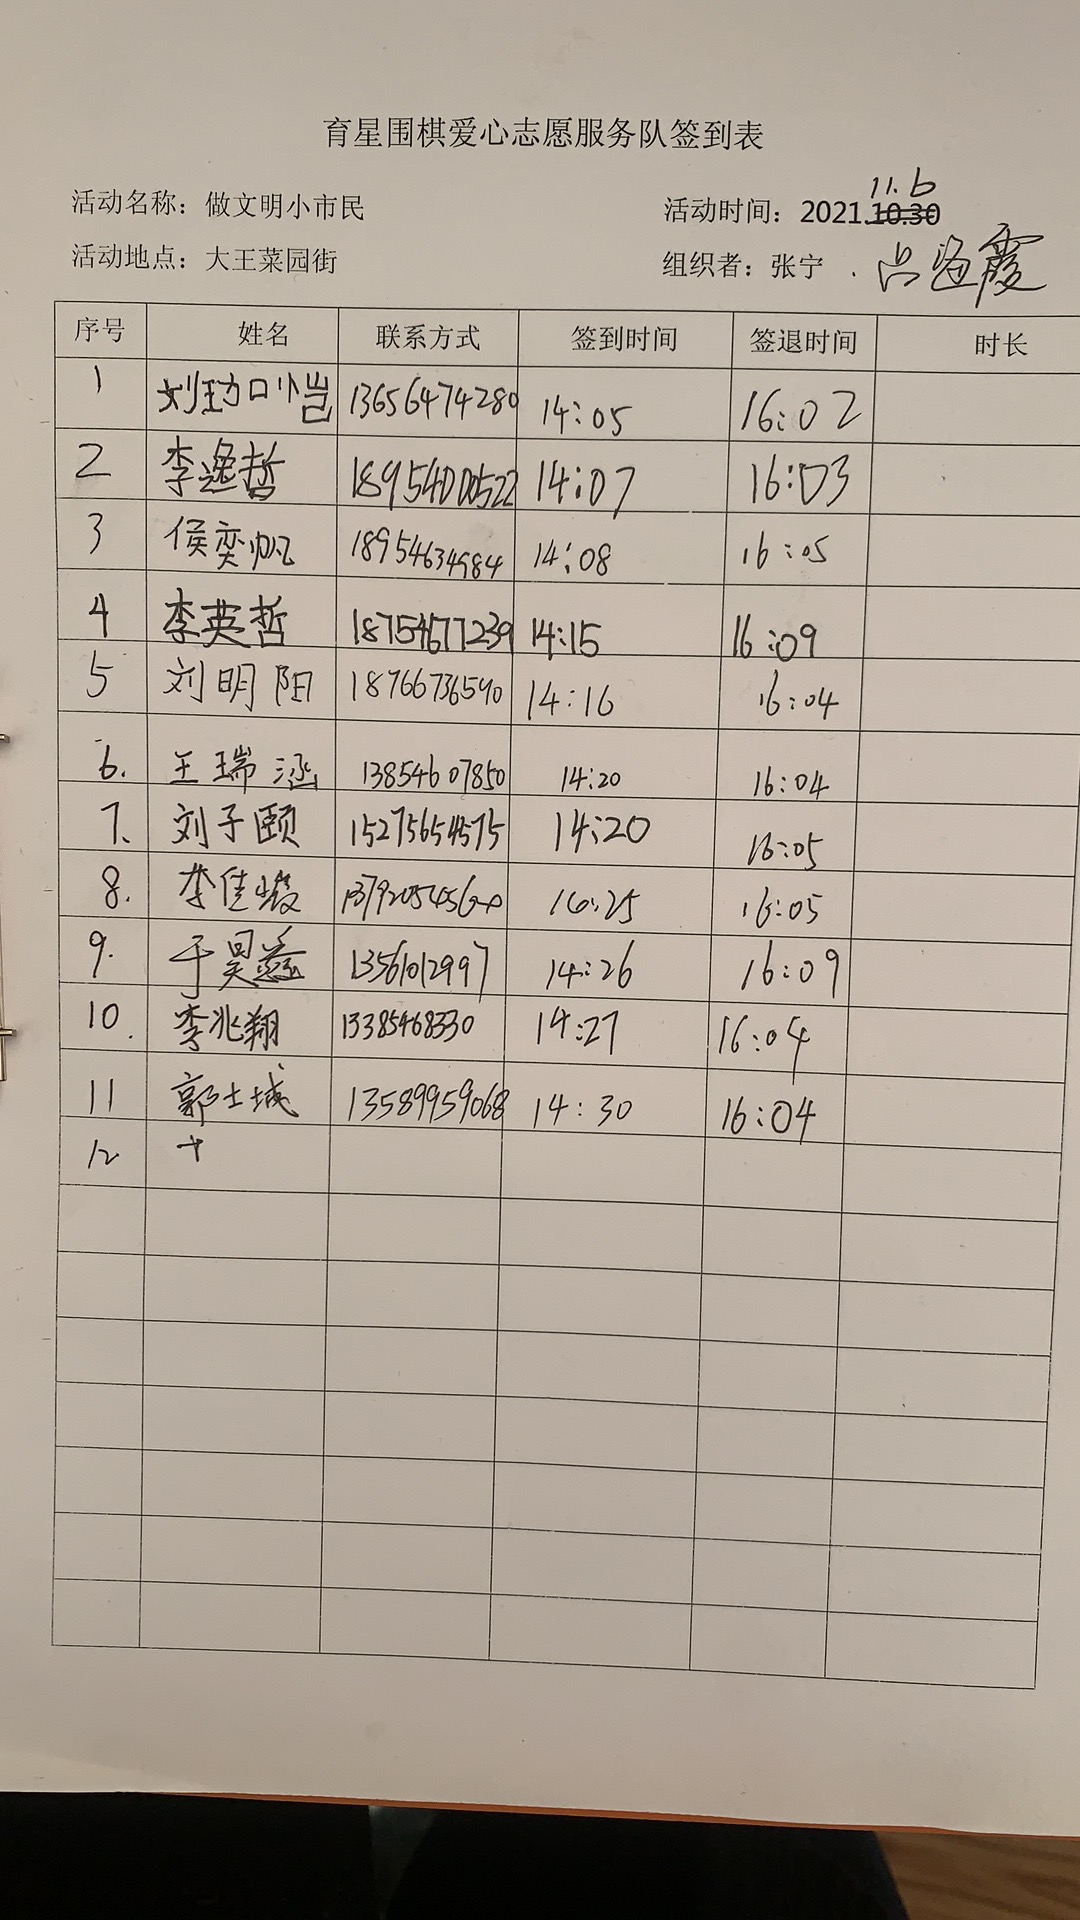 育星围棋爱心志愿服务队签到表
11.6
活动名称：做文明小市民 活动时间：2021.10.30
活动地点：大王菜园街 组织者：张宁
序号 姓名 联系方式 签到时间 签退时间 时长
1 13656474280 14:05 16:02
2 李逸哲 18954000522 14:07 16:03
3 侯奕帆 18954634984 14:08 16:05
4 李英哲 18754677239 14:15 16:09
5 刘明阳 18766736590 14:16 16:04
6. 王瑞涵 13854607850 14:20 16:04
7. 刘子颐 15275654575 14:20 16:05
8. 李佳峻 16:25 16:05
9. 于昊鑫 13561012997 14:26 16:09
10. 李兆翔 13385468330 14:27 16:04
11 郭士城 13589959068 14:30 16:04
12